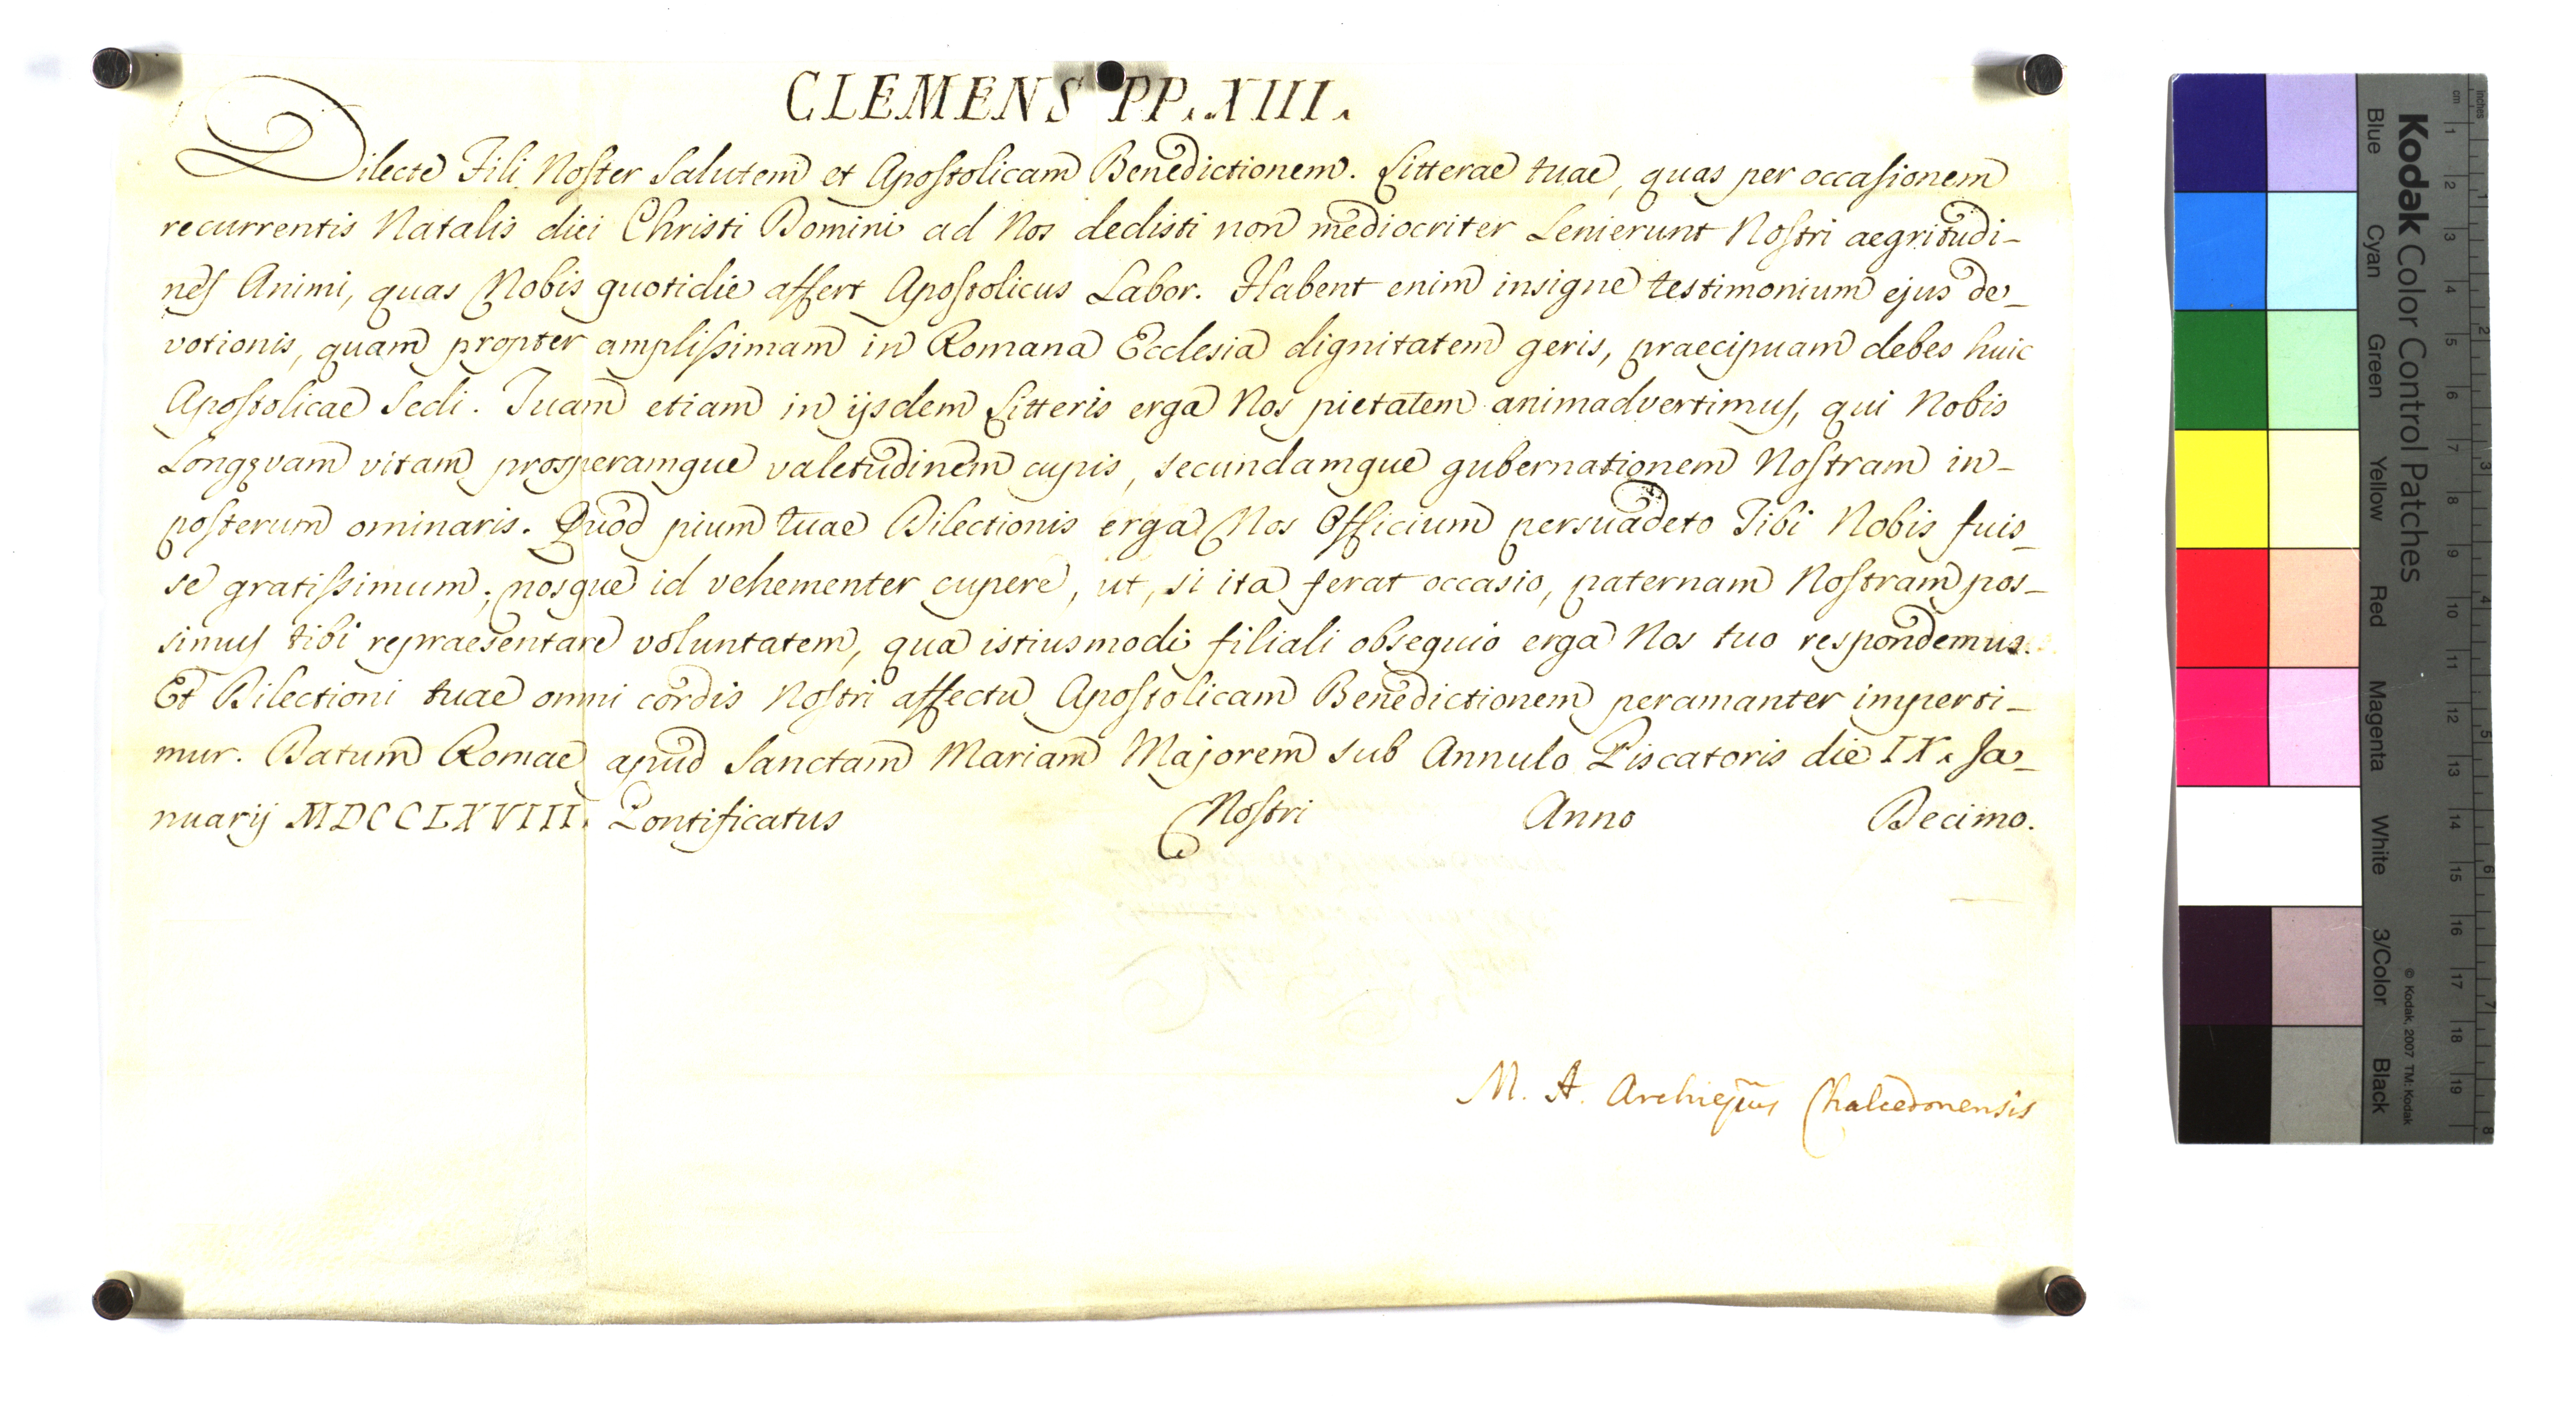 CLEMENS PP. XIII.
Dilecte Fili Noster Salutem et Apostolicam Benedictionem. Litterae tuae, quas per occasionem
recurrentis Natalis diei Christi Domini ad Nos dedisti non mediocriter Lenierunt Nostri aegritudi-
nes Animi, quas Nobis quotidie affert Apostolicus Labor. Habent enim insigne testimonium ejus de-
votionis, quam propter amplissimam in Romana Ecclesia dignitatem geris, praecipuam debes huic
Apostolicae Sedi. Tuam etiam in ijsdem Litteris erga Nos pietatem animadvertimus, qui Nobis
Longqvam vitam prosperamque valetudinem cupis, secundamque gubernationem Nostram in-
posterum ominaris. Quod pium tuae Dilectionis erga Nos Officium persuadeto Tibi Nobis fuis-
se gratissimum; nosque id vehementer cupere, ut, si ita ferat occasio, paternam Nostram pos-
simus tibi repraesentare voluntatem, qua istiusmodi filiali obsequio erga Nos tuo respondemus.
Et Dilectioni tuae omni cordis Nostri affectu Apostolicam Benedictionem peramanter imperti-
mur. Datum Romae apud Sanctam Mariam Majorem sub Annulo Piscatoris die IX. Ja-
nuarij MDCCLXVIII. Pontificatus Nostri Anno Decimo.
M. A. Archiepūs Chalcedonensis
Kodak Color Control Patches
Blue Cyan Green Yellow Red Magenta White 3/Color Black
© Kodak, 2007 TM: Kodak
cm 1 2 3 4 5 6 7 8 9 10 11 12 13 14 15 16 17 18 19
inches 1 2 3 4 5 6 7 8